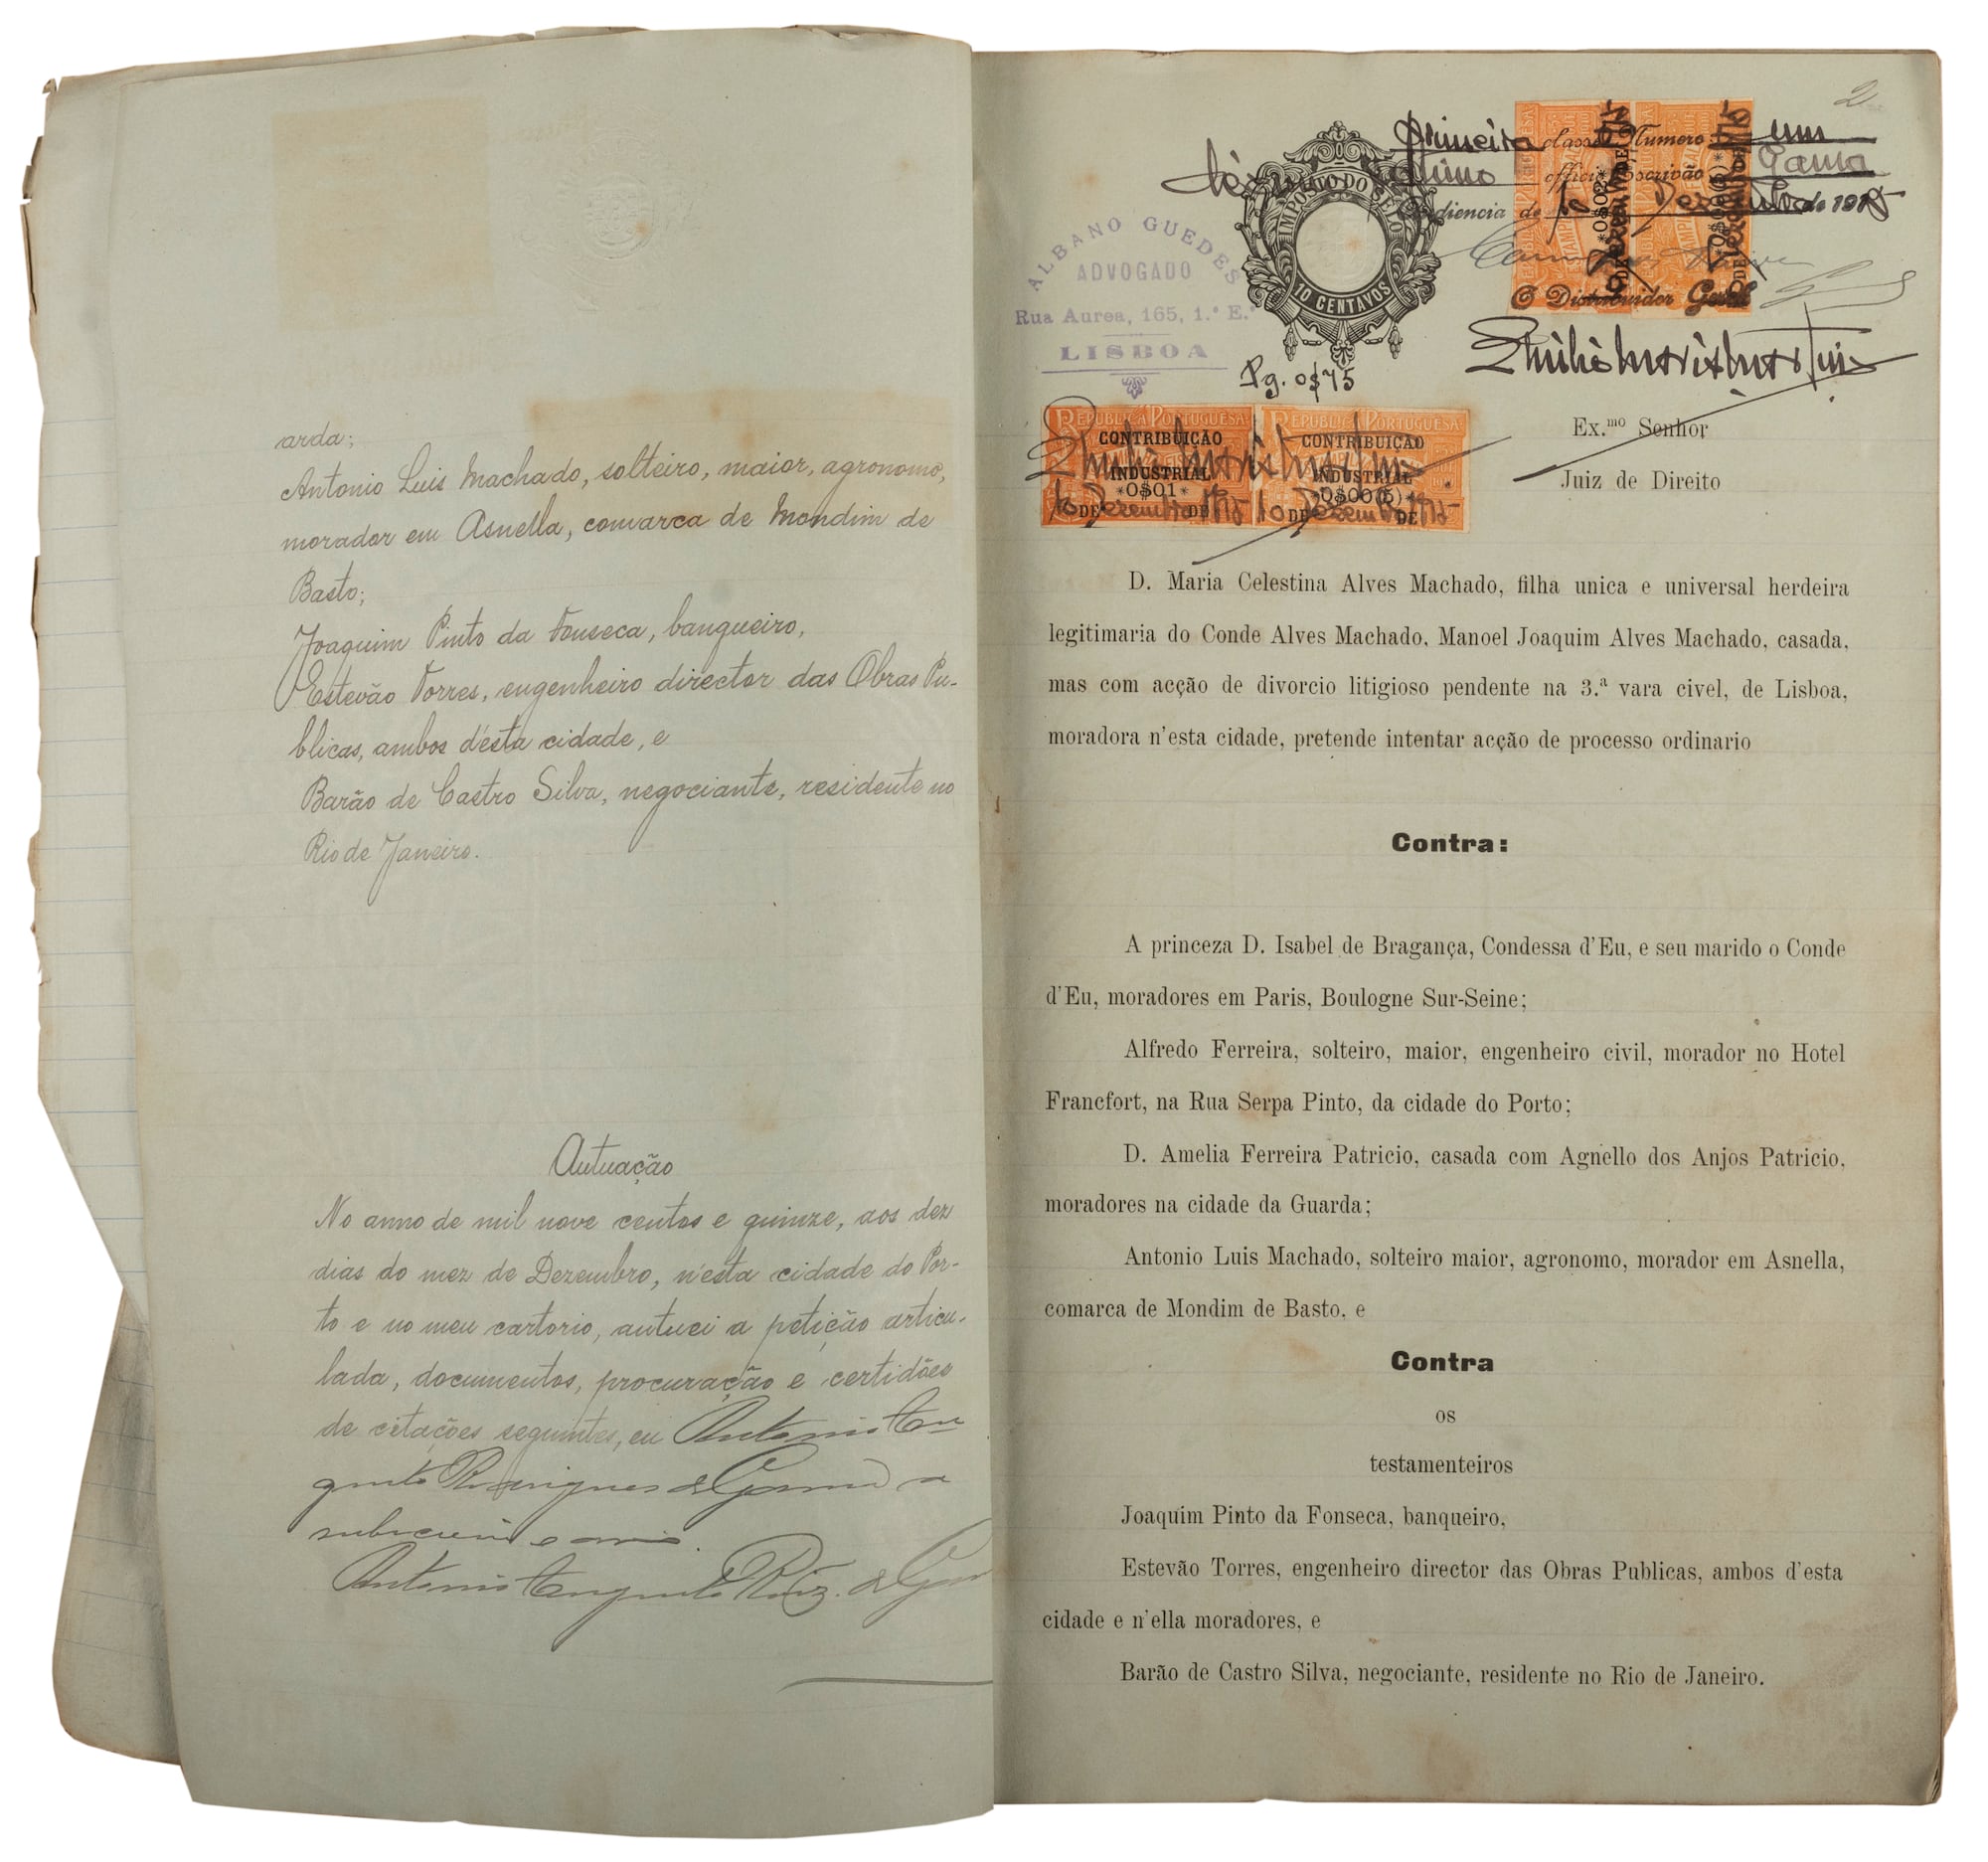 arda;
Antonio Luis Machado, solteiro, maior, agronomo,
morador em Asnella, comarca de Mondim de
Basto;
Joaquim Pinto da Fonseca, banqueiro,
Estevão Torres, engenheiro director das Obras Pu-
blicas, ambos d'esta cidade, e
Barão de Castro Silva, negociante, residente no
Rio de Janeiro.
Autuação
No anno de mil nove centos e quinze, aos dez
dias do mez de Dezembro, n'esta cidade do Por-
to e no meu cartorio, autuei a petição articu-
lada, documentos, procuração e certidões
de citações seguintes, eu Antonio Au
gusto Rodrigues da Gama a
subscrevi e
Antonio Augusto Roiz. da Gam
2
Primeira classe Numero um
officio Escrivão Gama
Audiencia de 10 Dezembro de 1915
O Distribuidor Geral
IMPOSTO DO SELO
10 CENTAVOS
ALBANO GUEDES
ADVOGADO
Rua Aurea, 165, 1.º E.º
LISBOA
Pg. 0$75
REPUBLICA PORTUGUESA REPUBLICA PORTUGUESA
CONTRIBUIÇÃO CONTRIBUIÇÃO
INDUSTRIAL INDUSTRIAL
*0$01* *0$00(5)*
10 DE Dezembro DE 1915 10 DE Dezembro DE 1915
Ex.mo Senhor
Juiz de Direito
D. Maria Celestina Alves Machado, filha unica e universal herdeira
legitimaria do Conde Alves Machado, Manoel Joaquim Alves Machado, casada,
mas com acção de divorcio litigioso pendente na 3.ª vara civel, de Lisboa,
moradora n'esta cidade, pretende intentar acção de processo ordinario
Contra:
A princeza D. Isabel de Bragança, Condessa d'Eu, e seu marido o Conde
d'Eu, moradores em Paris, Boulogne Sur-Seine;
Alfredo Ferreira, solteiro, maior, engenheiro civil, morador no Hotel
Francfort, na Rua Serpa Pinto, da cidade do Porto;
D. Amelia Ferreira Patricio, casada com Agnello dos Anjos Patricio,
moradores na cidade da Guarda;
Antonio Luis Machado, solteiro maior, agronomo, morador em Asnella,
comarca de Mondim de Basto, e
Contra
os
testamenteiros
Joaquim Pinto da Fonseca, banqueiro,
Estevão Torres, engenheiro director das Obras Publicas, ambos d'esta
cidade e n'ella moradores, e
Barão de Castro Silva, negociante, residente no Rio de Janeiro.